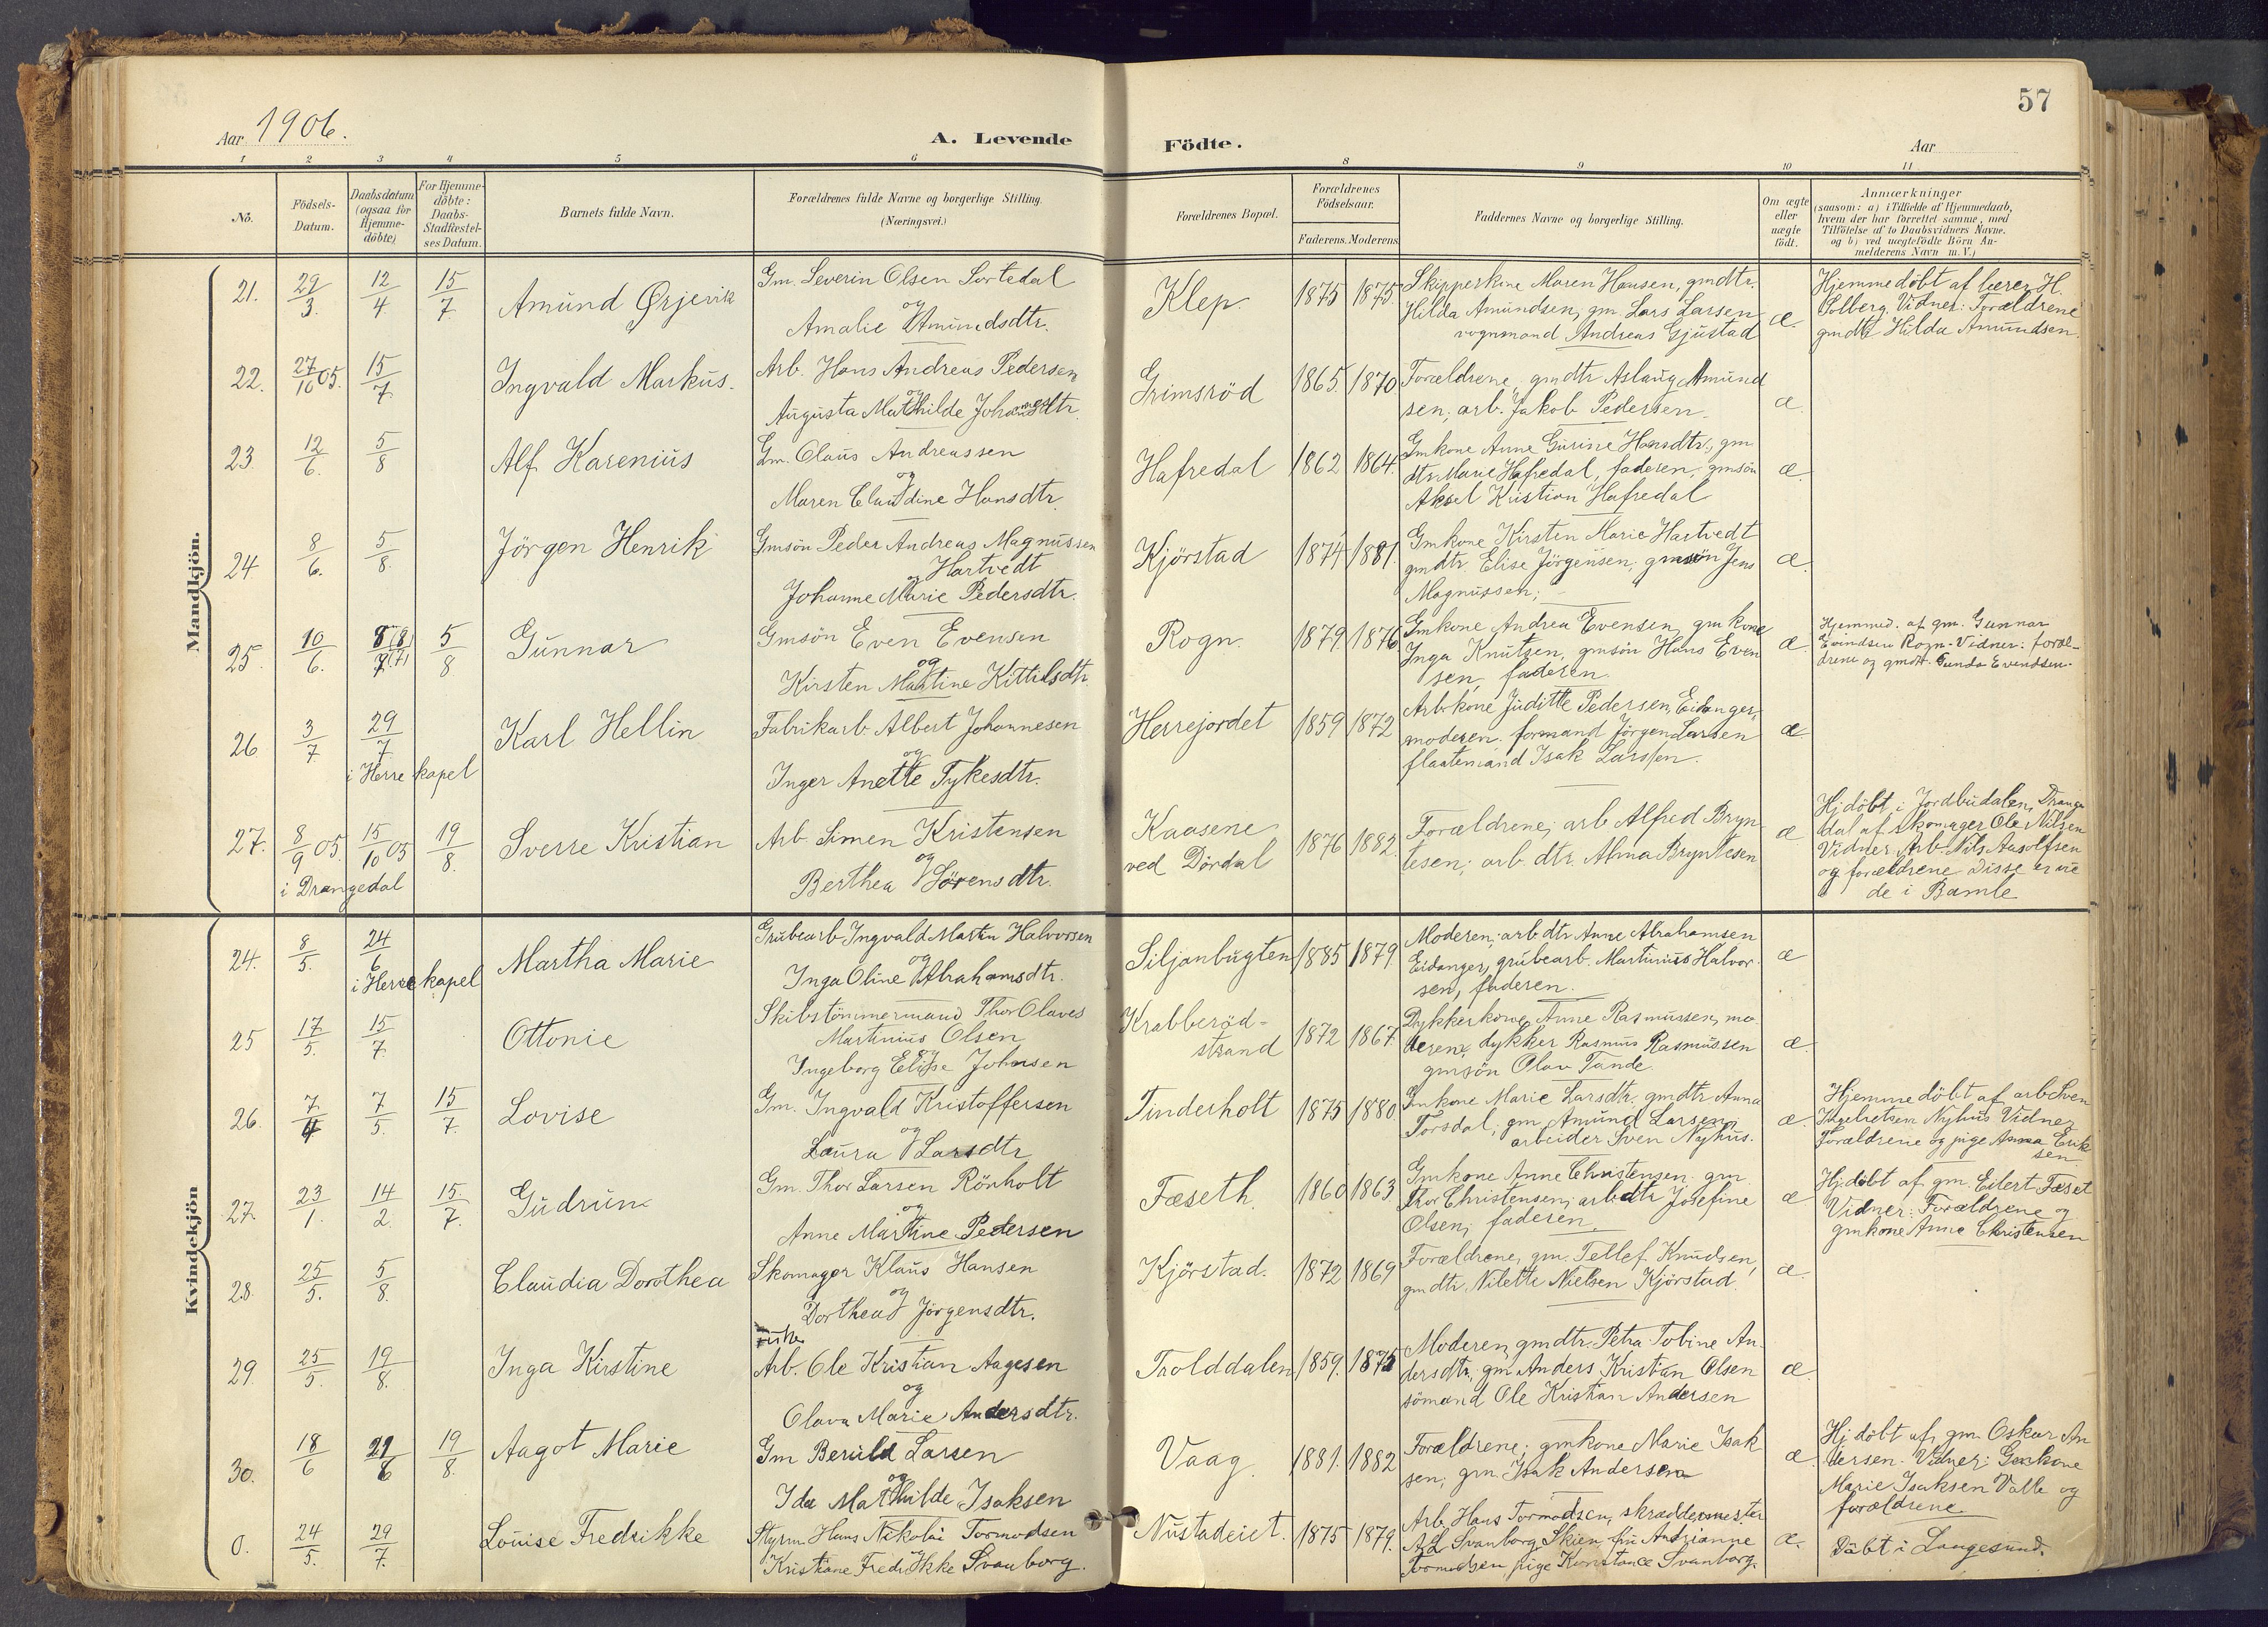 57
Aar 1906.
A. Levende Födte.
Aar
1 2 3 4 5 6 8 9 10 11
No.
Födsels-Datum.
Daabsdatum (ogsaa for Hjemme-döbte)
For Hjemme-döbte: Daabs-Stadfæstel-ses Datum.
Barnets fulde Navn.
Forældrenes fulde Navne og borgerlige Stilling. (Næringsvei.)
Forældrenes Bopæl.
Forældrenes Födselsaar.
Faderens. Moderens.
Faddernes Navne og borgerlige Stilling.
Om ægte eller uægte födt.
Anmærkninger
(saasom: a) i Tilfælde af Hjemmedaab,
hvem der har forrettet samme, med
Tilföielse af to Daabsvidners Navne.
og b) ved uægtefödte Börn An-
melderens Navn m. V.)
Mandkjön.
21. 29/3. 12/4. 15/7. Amund Ørjerik
Gm. Severin Olsen Sortedal
og
Amalie Amundsdtr.
Klep. 1875 1875.
Skipperkone Maren Hansen, gmdtr.
Hilda Amundsen, gm. Lars Larsen
vognmand Andreas Gjustad
æ.
Hjemmedöbt af lærer H.
Solberg. Vidner: Forældrene
gmdtr Hilda Amundsen.
22. 27/10 05. 15/7. Ingvald Markus.
Arb. Hans Andreas Pedersen
og
Augusta Mathilde Johannesdtr.
Grimsröd 1865. 1870
Forældrene, gmdtr Aslaug Amund
sen; arb. Jakob Pedersen.
æ.
23. 12/6. 5/8 Alf Karenius
Gm. Olaus Andreassen
og
Maren Claudine Hansdtr.
Hafredal 1862 1864.
Gmkone Anne Gurine Hansdtr; gm.
dtr. Marie Hafredal, faderen, gmsön
Aksel Kristian Hafredal
æ.
24. 8/6. 5/8. Jörgen Henrik
Gmsön Peder Andreas Magnussen
Hartvedt
og
Johanne Marie Pedersdtr.
Kjörstad 1874 1881.
Gmkone Kirsten Marie Hartvedt
gmdtr. Elise Jörgensen; gmsön Jens
Magnussen;
æ.
25. 10/6. 8/7 (8/7) 5/8 Gunnar
Gmsön Even Evensen
og
Kirsten Martine Kittilsdtr.
Rogn. 1879. 1876
Gmkone Andrea Evensen, gm kone
Inga Knutsen, gmsön Hans Even
sen, faderen.
æ.
Hjemmed. af gm. Gunnar
Eivindsen Rogn. Vidner: foræl-
drene og gmdtr. Gunda Evendsen.
26. 3/7 29/7 i Herre kapel Karl Hellin
Fabrikarb. Albert Johannesen
og
Inger Anette Tykesdtr.
Herrejordet 1859 1872
Arb.kone Juditte Pedersen, Eidanger,
moderen. formand Jörgen Larsen
flaatemand Isak Larssen.
æ
27. 8/9 05. 15/10 05 19/8. i Drangedal Sverre Kristian
Arb. Simen Kristensen
og
Berthea Sörensdtr.
Kaasene
ved Dördal 1876 1882.
Forældrene; arb Alfred Bryn
tesen; arb. dtr. Alma Bryntesen
æ
Hj.döbt i Jordbudalen, Drange
dal af skomager Ole Nilsen
Vidner. Arb. Nils Aasolfsen
og forældrene Disse er vie
de i Bamle
Kvindekjön
24. 8/5. 24/6 i Herre kapel Martha Marie
Grubearb Ingvald Martin Halvorsen
og
Inga Oline Abrahamsdtr.
Siljanbugten 1885 1879
Moderen; arb dtr Anne Abrahamsen
Eidanger, grubearb. Martinius Halvor-
sen, faderen.
æ
25 17/5. 15/7. Ottonie
Skibstömmermand Thor Olaves
Martinius Olsen
og
Ingeborg Elise Johnsen
Krabberöd-
strand 1872 1867.
Dykkerkone, Anne Rasmussen, mo-
deren, dykker Rasmus Rasmussen
gmsön Olav Tande.
æ.
26. 7/4 7/5. 15/7. Lovise
Gm. Ingvald Kristoffersen
og
Laura Larsdtr
Tinderholt 1875 1880
Gmkone Marie Larsdtr; gmdtr Anna
Torsdal; gm Amund Larsen,
arbeider Sven Nyhus.
æ.
Hjemmedöbt af arb Sven
Ingebretsen Nyhus Vidner
Forældrene og pige Anna Erik
sen.
27. 23/1. 14/2. 15/7. Gudrun
Gm. Thor Larsen Rönholt
og
Anne Martine Pedersen
Fæseth. 1860 1863
Gmkone Anne Christensen. gm.
Thor Christensen; arb.dtr Josefine
Olsen; faderen.
æ
Hj.döbt af gm. Eilert Fæset
Vidner: Forældrene og
gmkone Anne Christensen
28. 25/5. 5/8. Claudia Dorothea
Skomager Klaus Hansen
og
Dorthea Jörgensdtr.
Kjörstad. 1872 1869
Forældrene, gm. Tellef Knudsen,
gmdtr. Nilette Nielsen Kjörstad.
æ.
29. 25/5. 19/8. Inga Kirstine
Arb. Ole Kristian Aagesen
og
Olava Marie Andersdtr.
Trolddalen 1859. 1875
Moderen, gmdtr. Petra Tobine An-
dersdtr, gm Anders Kristian Olsen
sömand Ole Kristian Andersen
æ.
30. 18/6 29/6 19/8. Aagot Marie
Gm Beruld Larsen
og
Ida Mathilde Isaksen
Vaag. 1881. 1882
Forældrene; gmkone Marie Isak
sen; gm. Isak Andersen
æ.
Hj döbt af gm. Oskar An
dersen. Vidner: Gmkone
Marie Isaksen Valle og
forældrene
0. 24/5. 29/7. Louise Fredrikke
Styrm. Hans Nikolai Tormodsen
og
Kristiane Fredrikke Svanborg.
Nustadeiet. 1875 1879.
Arb. Hans Tormodsen, skræddermester
Svanborg Skien, fru Andrianne
Tormodsen, pige Konstance Svanborg.
æ.
Döbt i Langesund.